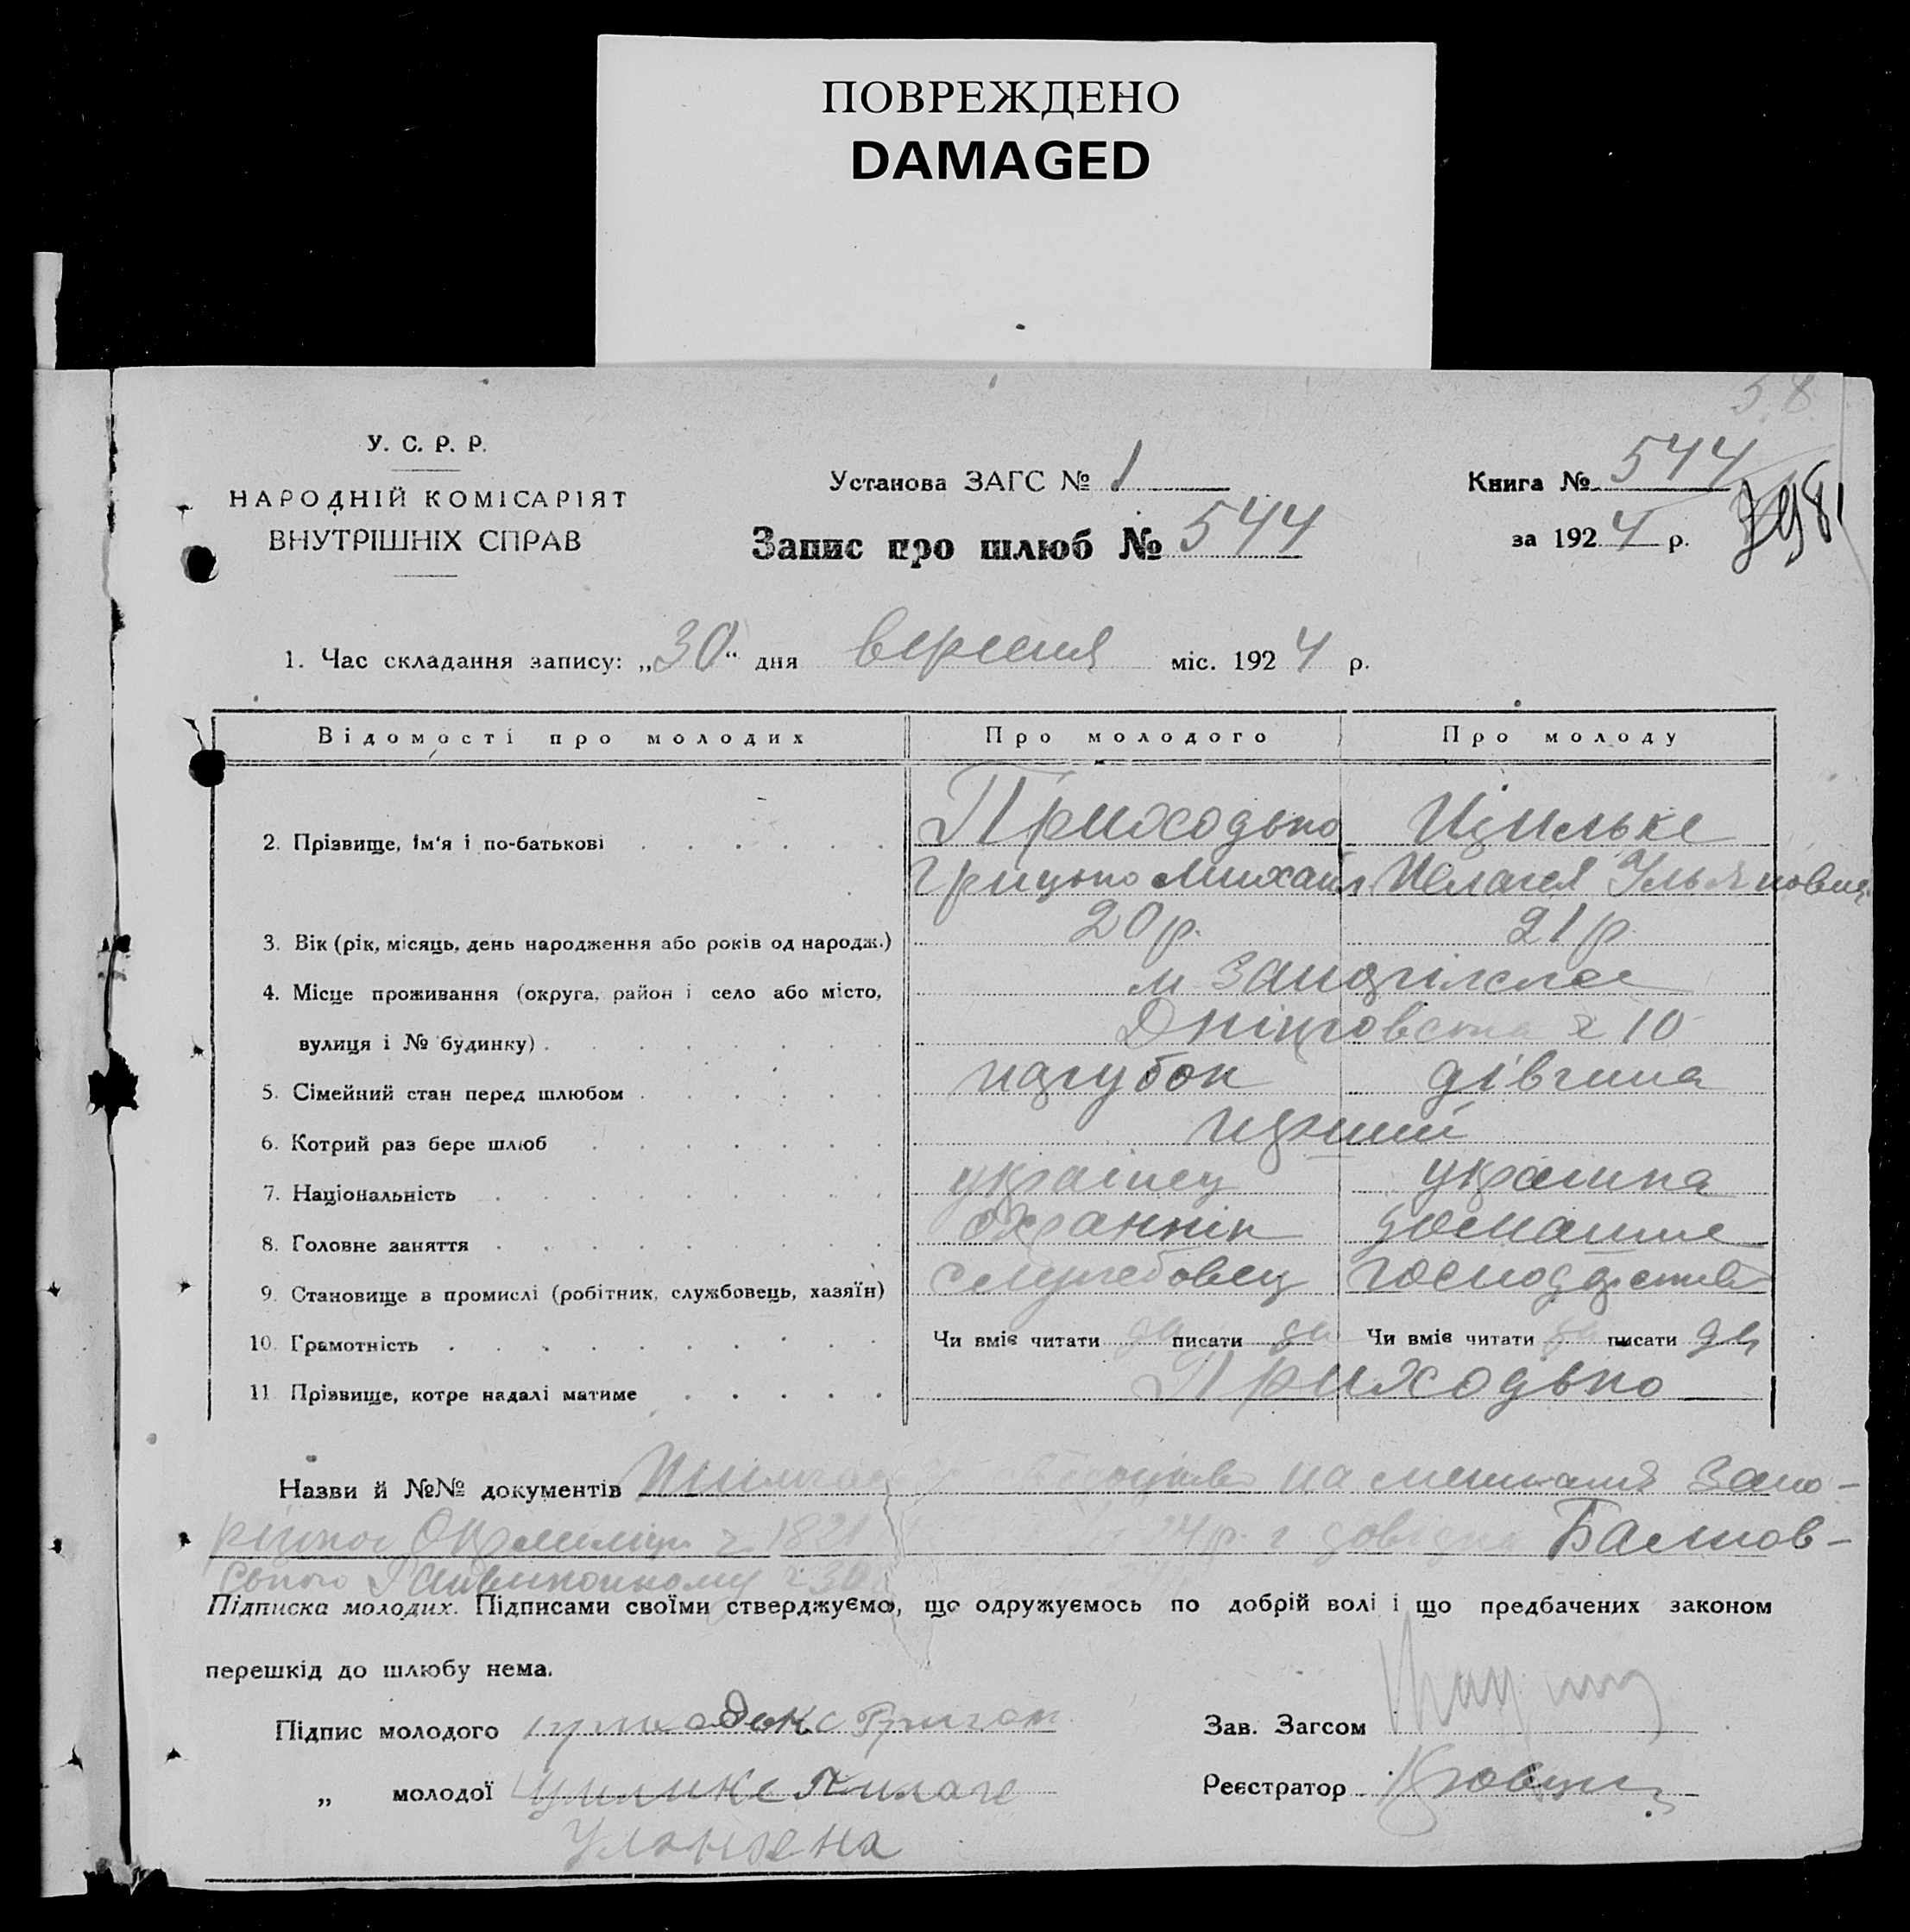 ПОВРЕЖДЕНО
DAMAGED
58
У. С. Р. Р.
НАРОДНІЙ КОМІСАРІЯТ
ВНУТРІШНІХ СПРАВ
Установа ЗАГС № 1
Запис про шлюб № 544
Книга № 544
за 1924 р.
1. Час складання запису: „30“ дня вересня міс. 1924 р.
Відомості про молодих Про молодого Про молоду
2. Прізвище, ім'я і по-батькові Приходько
Грицько Михайл. Пелагея
3. Вік (рік, місяць, день народження або років од народж.) 20 р. 21 р.
4. Місце проживання (округа, район і село або місто, м
вулиця і № будинку) 10
5. Сімейний стан перед шлюбом парубок дівчина
6. Котрий раз бере шлюб перший
7. Національність українец українка
8. Головне заняття охранник домашнє
9. Становище в промислі (робітник, службовець, хазяїн) службовец господарство
10. Грамотність Чи вміє читати да писати да Чи вміє читати да писати да
11. Прізвище, котре надалі матиме Приходько
Назви й №№ документів на мешкання Запо-
1821 24 р. Балков-
Підписка молодих. Підписами своїми стверджуємо, що одружуємось по добрій волі і що предбачених законом
перешкід до шлюбу нема.
Підпис молодого
Зав. Загсом
„ молодої
Реєстратор